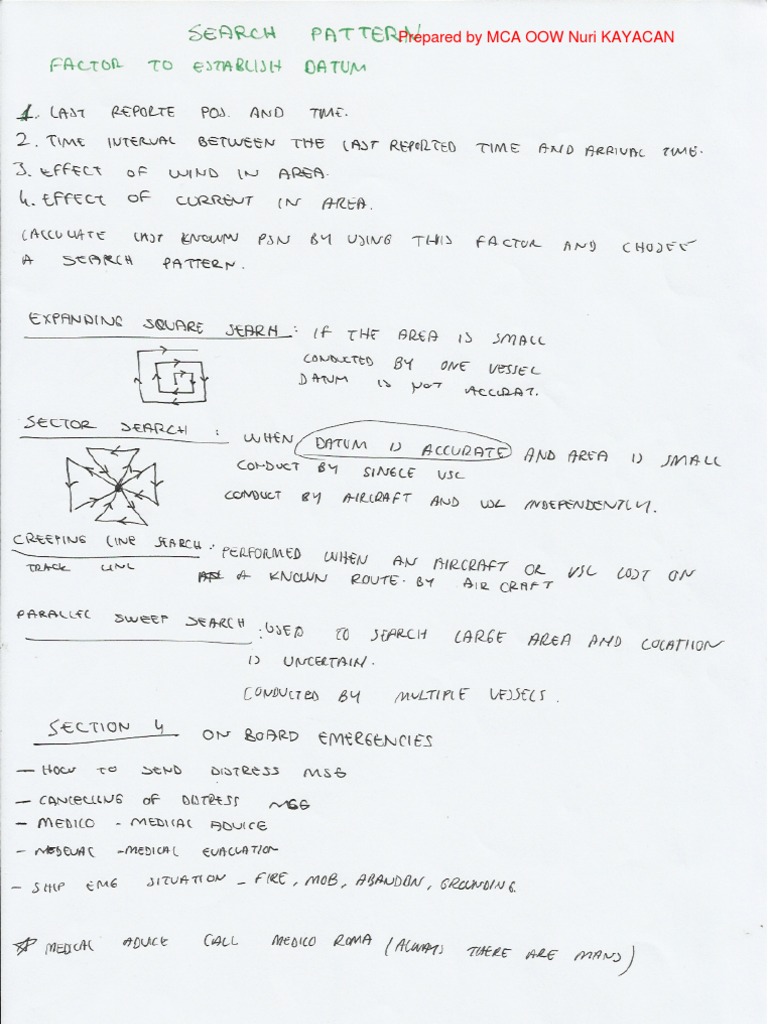 SEARCH PATTERN
Prepared by MCA OOW Nuri KAYACAN
FACTOR TO ESTABLISH DATUM
1. LAST REPORTE POS. AND TIME.
2. TIME INTERVAL BETWEEN THE LAST REPORTED TIME AND ARRIVAL TIME.
3. EFFECT OF WIND IN AREA.
4. EFFECT OF CURRENT IN AREA.
CALCULATE LAST KNOWN PSN BY USING THIS FACTOR AND CHOSEE
A SEARCH PATTERN.
EXPANDING SQUARE SEARH : IF THE AREA IS SMALL
CONDUCTED BY ONE VESSEL
DATUM IS NOT ACCURAT.
SECTOR SEARCH : WHEN DATUM IS ACCURATE AND AREA IS SMALL
CONDUCT BY SINGLE VSL
CONDUCT BY AIRCRAFT AND VSL INDEPENDENTLY.
CREEPING LINE SEARCH : PERFORMED WHEN AN AIRCRAFT OR VSL LOST ON
TRACK LINE A KNOWN ROUTE. BY AIR CRAFT
PARALLEL SWEEP SEARCH : USED TO SEARCH LARGE AREA AND LOCATION
IS UNCERTAIN.
CONDUCTED BY MULTIPLE VESSELS.
SECTION 4 ON BOARD EMERGENCIES
- HOW TO SEND DISTRESS MSG
- CANCELLING OF DISTRESS MSG
- MEDICO - MEDICAL ADVICE
- MEDEVAC - MEDICAL EVACUATION
- SHIP EMG SITUATION - FIRE, MOB, ABANDON, GROUNDING.
* MEDICAL ADVICE CALL MEDICO ROMA (ALWAYS THERE ARE MANS)